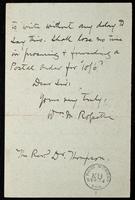 to write without any delay to
say this. Shall lose no time
in procuring & forwarding a
Postal Order for "10/6".
Dear Sir,
Yours very truly,
Wm M. Rossetti
The Revd Dr Thompson.